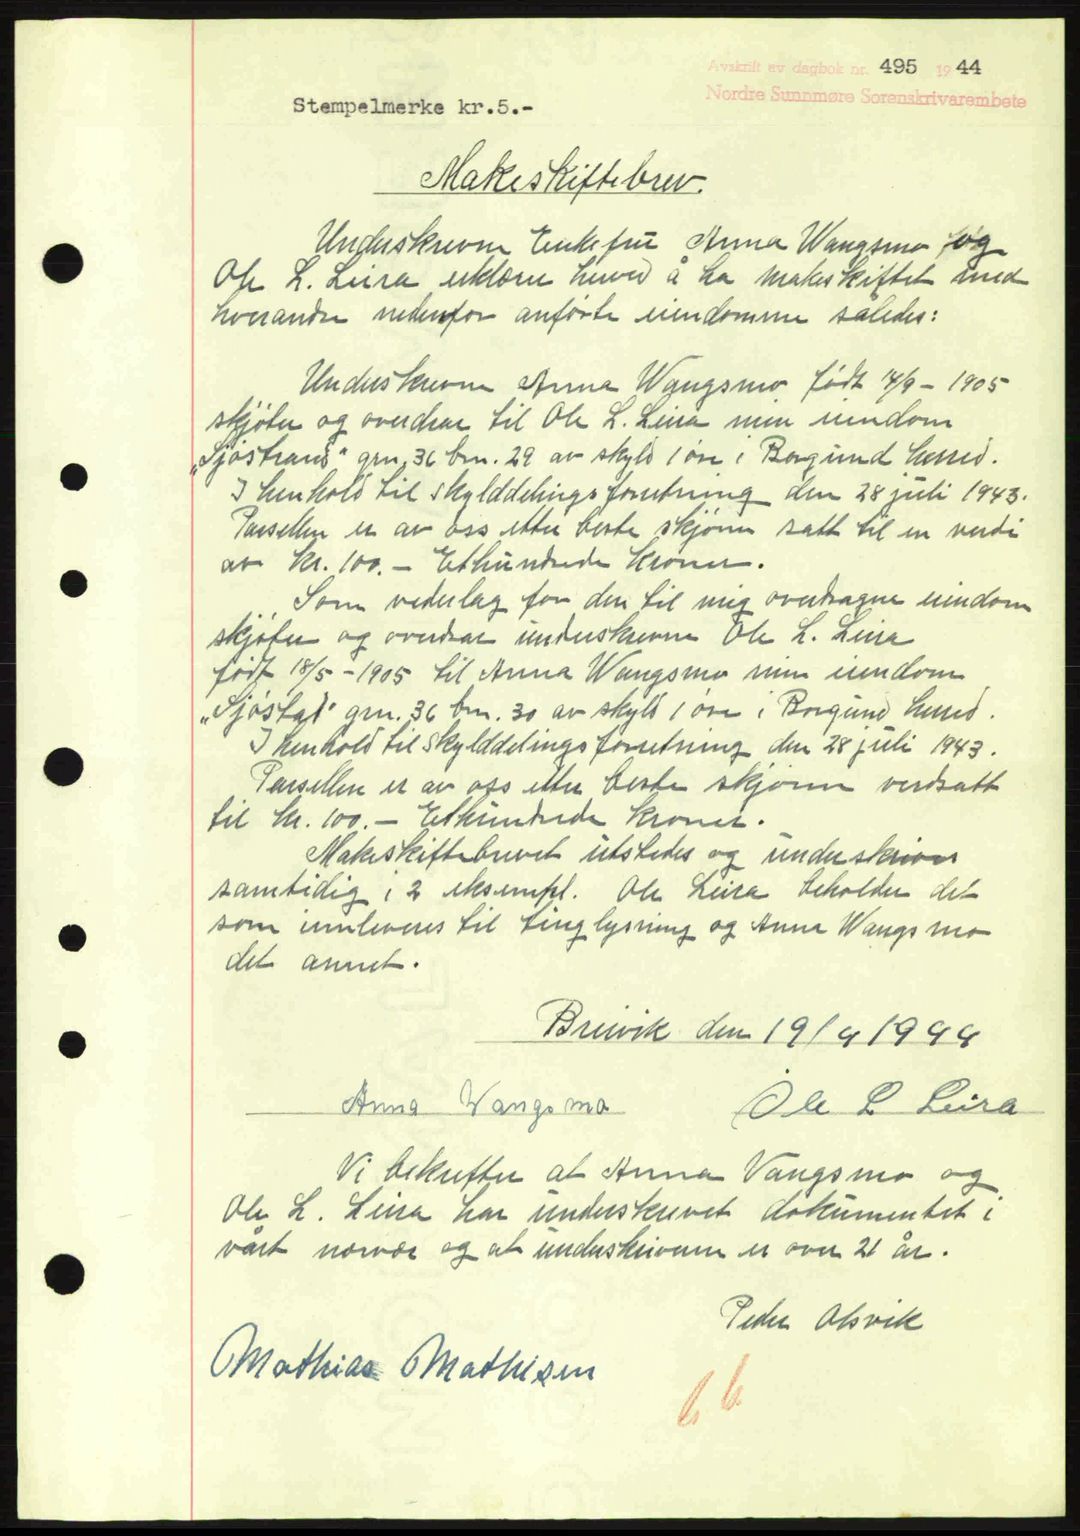 Avskrift av dagbok nr. 495 1944
Nordre Sunnmøre Sorenskrivarembete
Stempelmerke kr.5.-
Makeskiftebrev.
Underskrevne Enkefru Anna Wangsmo og
Ole L. Leira erklærer herved å ha makeskiftet med
hverandre nedenfor anførte eiendomme således:
Underskrevne Anna Wangsmo født 14/9 - 1905
skjøter og overdrar til Ole L. Leira min eiendom
"Sjøstrand" grn. 36 brn. 29 av skyld 1 øre i Borgund herred.
I henhold til skylddelingsforretning den 28 juli 1943.
Parsellen er av oss etter beste skjønn satt til en verdi
av kr. 100.- Ethundrede kroner.
Som vederlag for den til mig overdragne eiendom
skjøter og overdrar underskrevne Ole L. Leira
født 18/5 - 1905 til Anna Wangsmo min eiendom
"Sjøstad" grn. 36 brn. 30 av skyld 1 øre i Borgund herred.
I henhold til skylddelingsforretning den 28 juli 1943.
Parsellen er av oss etter beste skjønn verdsatt
til kr. 100.- Ethundrede kroner.
Makeskiftebrevet utstedes og underskrives
samtidig i 2 eksempl. Ole Leira beholder det
som innleveres til tinglysning og Anna Wangsmo
det annet.
Breivik den 19/4 1944
Anna Wangsmo Ole L Leira
Vi bekrefter at Anna Vangsmo og
Ole L. Leira har underskrevet dokumentet i
vårt nærvær og at underskriverne er over 21 år.
Peder Alsvik
Mathias Mathisen